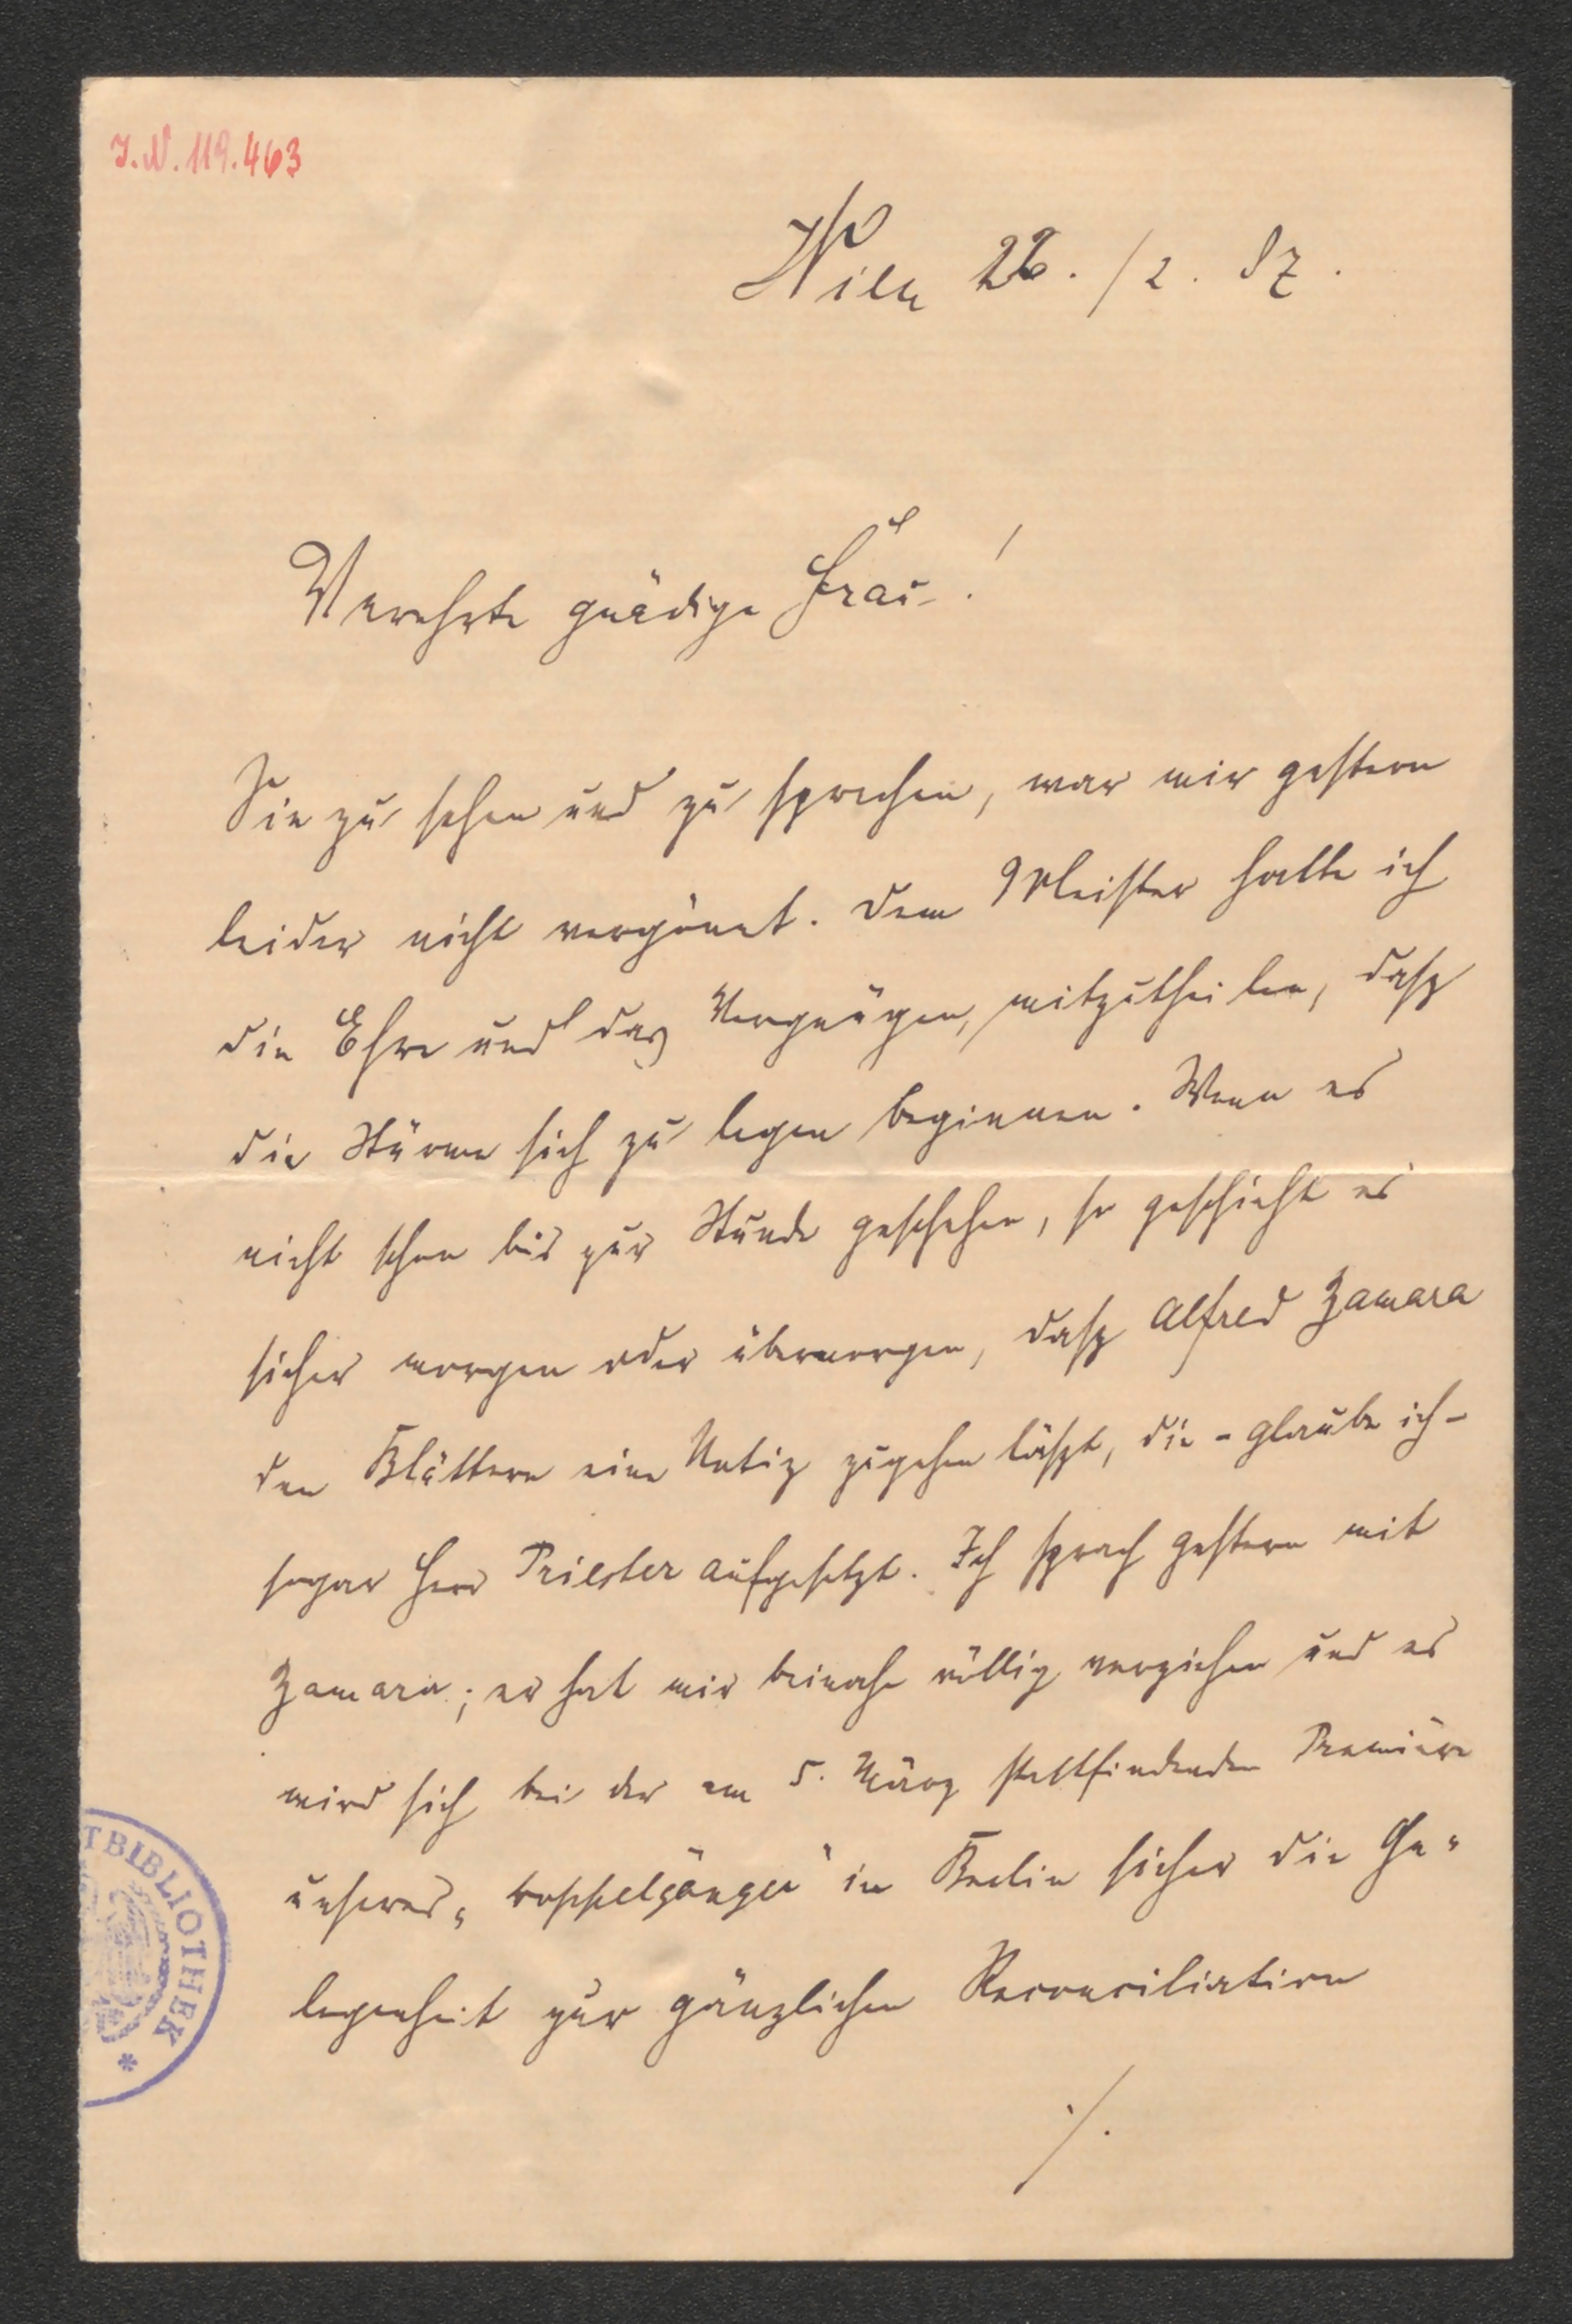 J.N. 119.463
Wien 26./2. 87.
Verehrte gnädige Frau!
Sie zu sehen und zu sprechen, war mir gestern
leider nicht vergönnt. Dem Meister hatte ich
die Ehre und das Vergnügen, mitzutheilen, dass
die Stürme sich zu legen beginnen. Wenn es
nicht schon bis zur Stunde geschehen, so geschieht es
sicher morgen oder übermorgen, dass Alfred Zamara
den Blättern eine Notiz zugehen lässt, die - glaube ich -
sogar Herr Priester aufgesetzt. Ich sprach gestern mit
Zamara; er hat mir beinahe völlig verziehen und es
wird sich bei der am 5. März stattfindenden Première
unseres „Doppelgänger" in Berlin sicher die Ge-
legenheit zur gänzlichen Reconciliation
./.
TBIBLIOTHEK *